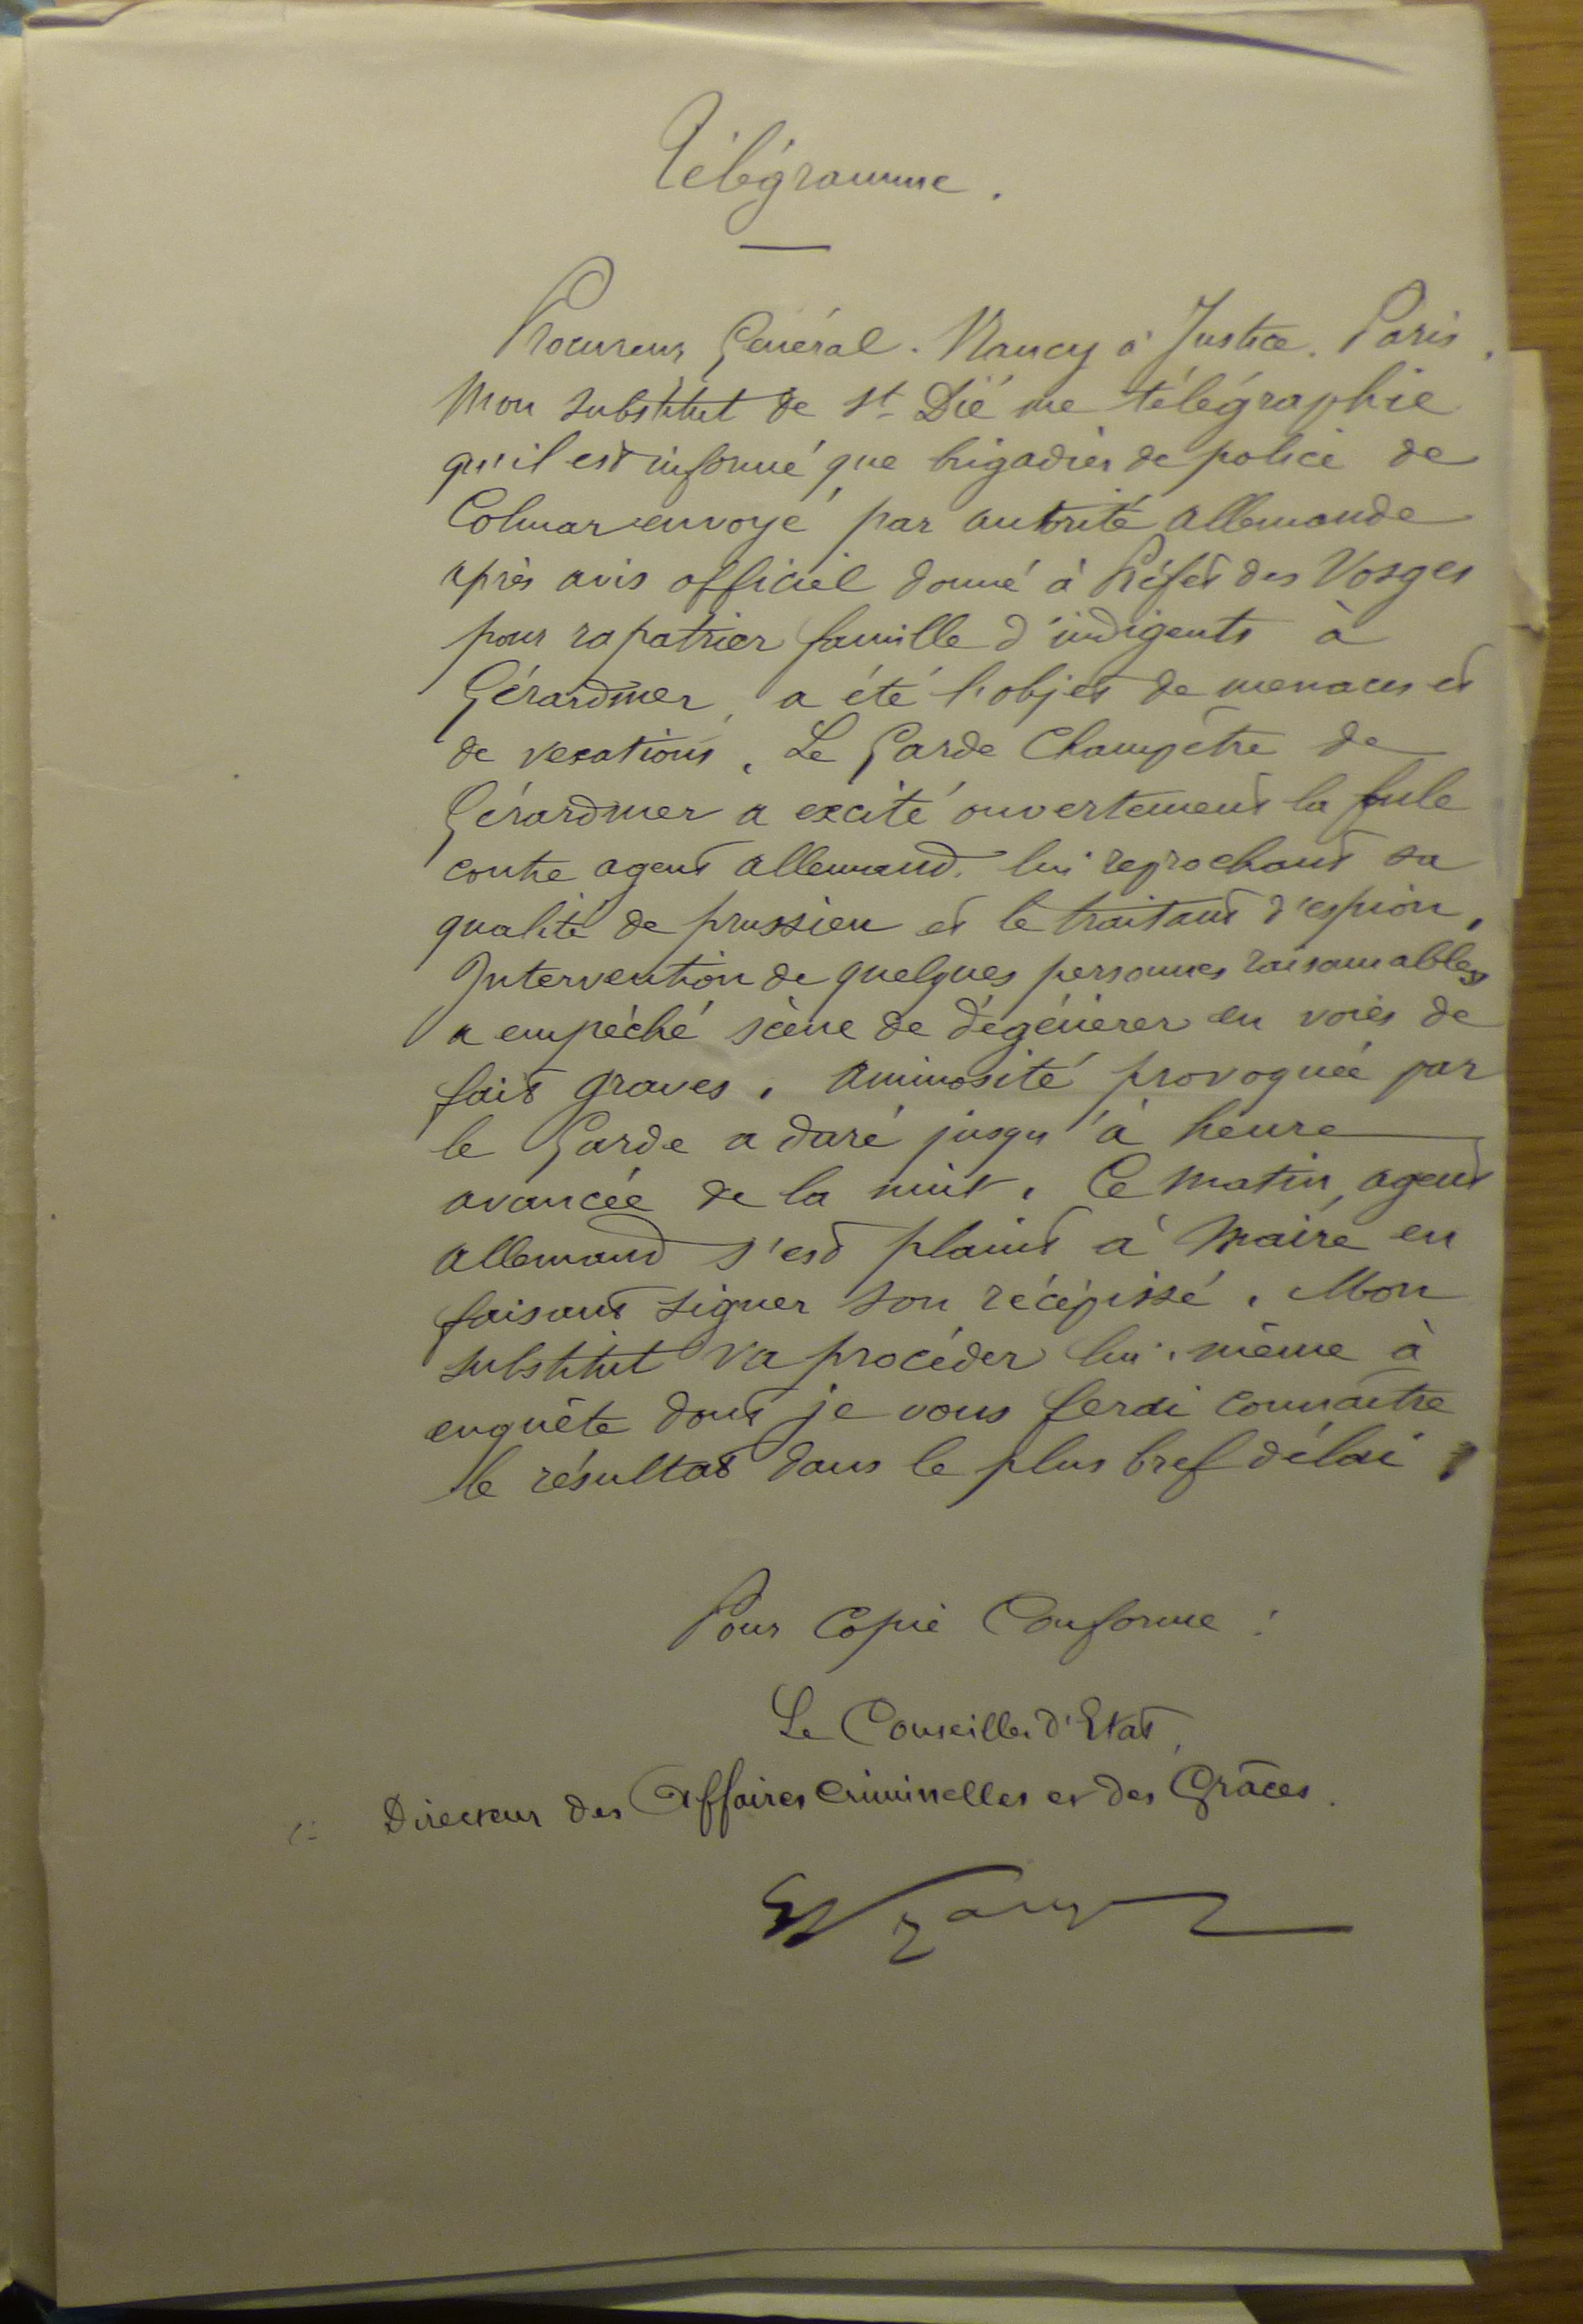 Télégramme.
Procureur Général. Nancy à Justice. Paris.
Mon substitut de St Dié me télégraphie
qu'il est informé que brigadier de police de
Colmar envoyé par autorité allemande
après avis officiel donné à Préfet des Vosges
pour rapatrier famille d'indigents à
Gérardmer, a été l'objet de menaces et
de vexations. Le Garde Champêtre de
Gérardmer a excité ouvertement la foule
contre agent allemand. lui reprochant sa
qualité de prussien et le traitant d'espion.
Intervention de quelques personnes raisonnables
a empêché scène de dégénérer en voies de
fait graves. Animosité provoquée par
le Garde a duré jusqu'à heure
avancée de la nuit. Ce matin, agent
allemand s'est plaint à Maire en
faisant signer son récépissé. Mon
substitut va procéder lui-même à
enquête dont je vous ferai connaître
le résultat dans le plus bref délai.
Pour Copie Conforme :
Le Conseiller d'Etat,
Directeur des Affaires Criminelles et des Grâces.